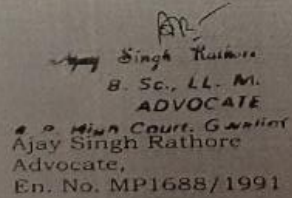 Ajay Singh Rathore
B. Sc., LL. M.
ADVOCATE
M. P. High Court, Gwalior
Ajay Singh Rathore
Advocate,
En. No. MP1688/1991